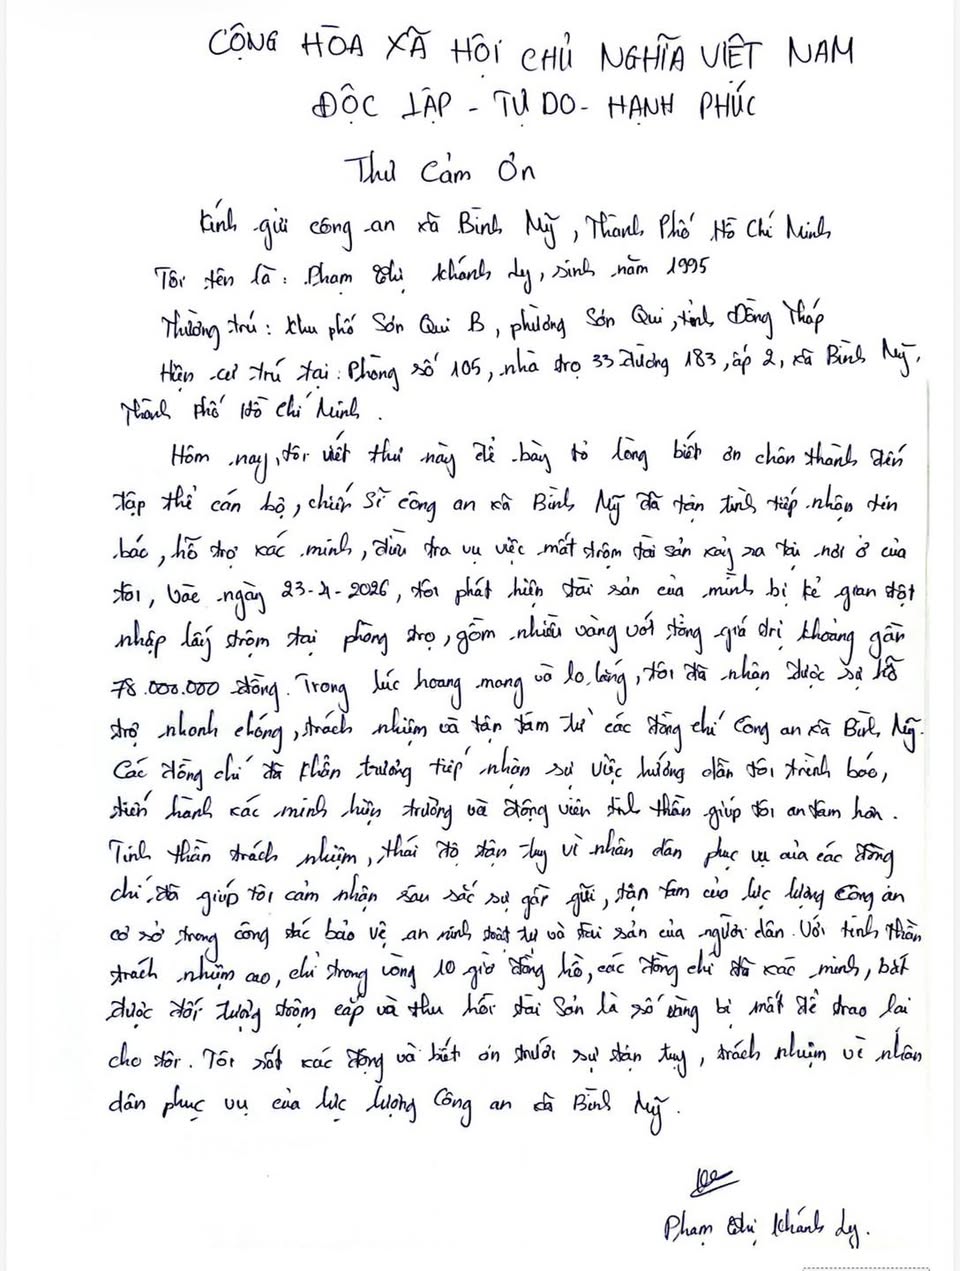 CỘNG HÒA XÃ HỘI CHỦ NGHĨA VIỆT NAM
ĐỘC LẬP - TỰ DO - HẠNH PHÚC
Thư Cảm Ơn
Kính gửi công an xã Bình Mỹ, Thành Phố Hồ Chí Minh
Tôi tên là: Phạm Thị Khánh Ly, sinh năm 1995
Thường trú: Khu phố Sơn Qui B, phường Sơn Qui, tỉnh Đồng Tháp
Hiện cư trú tại: Phòng số 105, nhà trọ 33 đường 183, ấp 2, xã Bình Mỹ,
Thành Phố Hồ Chí Minh.
Hôm nay, tôi viết thư này để bày tỏ lòng biết ơn chân thành đến
tập thể cán bộ, chiến sĩ công an xã Bình Mỹ đã tận tình tiếp nhận tin
báo, hỗ trợ xác minh, điều tra vụ việc mất trộm tài sản xảy ra tại nơi ở của
tôi, vào ngày 23-4-2026, tôi phát hiện tài sản của mình bị kẻ gian đột
nhập lấy trộm tại phòng trọ, gồm nhiều vàng với tổng giá trị khoảng gần
78.000.000 đồng. Trong lúc hoang mang và lo lắng, tôi đã nhận được sự hỗ
trợ nhanh chóng, trách nhiệm và tận tâm từ các đồng chí Công an xã Bình Mỹ.
Các đồng chí đã khẩn trương tiếp nhận sự việc hướng dẫn tôi trình báo,
tiến hành xác minh hiện trường và động viên tinh thần giúp tôi an tâm hơn.
Tinh thần trách nhiệm, thái độ tận tụy vì nhân dân phục vụ của các đồng
chí đã giúp tôi cảm nhận sâu sắc sự gần gũi, tận tâm của lực lượng Công an
cơ sở trong công tác bảo vệ an ninh trật tự và tài sản của người dân. Với tinh thần
trách nhiệm cao, chỉ trong vòng 10 giờ đồng hồ, các đồng chí đã xác minh, bắt
được đối tượng trộm cắp và thu hồi tài sản là số vàng bị mất để trao lại
cho tôi. Tôi rất xúc động và biết ơn trước sự tận tụy, trách nhiệm vì nhân
dân phục vụ của lực lượng Công an xã Bình Mỹ.
Phạm Thị Khánh Ly.